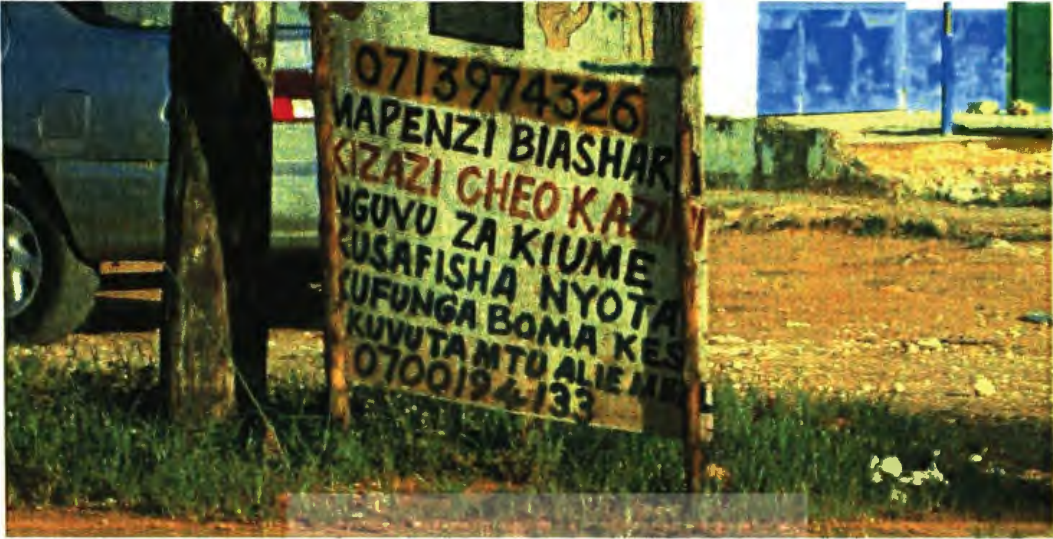 0713974326
MAPENZI BIASHAR
KIZAZI CHEO KAZI
NGUVU ZA KIUME
KUSAFISHA NYOTA
KUFUNGA BOMA KES
KUVUTA MTU ALIE MB
0700194133